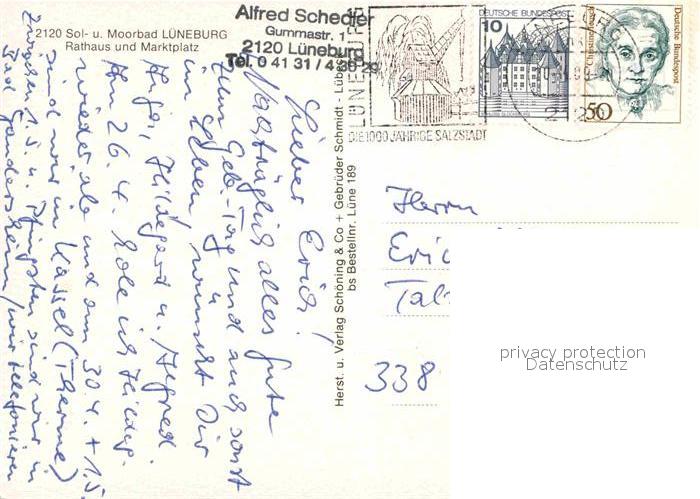 2120 Sol- u. Moorbad LÜNEBURG
Rathaus und Marktplatz
Alfred Schedler
Gummastr. 1
2120 Lüneburg
Tel. 0 41 31 / 4
LÜNEBURG
DIE 1000 JÄHRIGE SALZSTADT
DEUTSCHE BUNDESPOST
10
SCHLOSS GLÜCKSBURG
Deutsche Bundespost
50
Lieber Erich!
Nachträglich alles Gute
zum Geb.-Tag und auch sonst
im Leben, wünscht Dir
Hildegard u. Alfred.
Am 26.4. hole ich Hildeg.
wieder ab und am 30.4. + 1.5.
sind wir in Kassel (Therme)
Zwischen 1.5. u. Pfingsten sind wir in
Bad Gandersheim / wir telefonieren
Herst. u. Verlag Schöning & Co + Gebrüder Schmidt - Lübeck
bs Bestellnr. Lüne 189
Herrn
Eric
Tal
338
privacy protection
Datenschutz